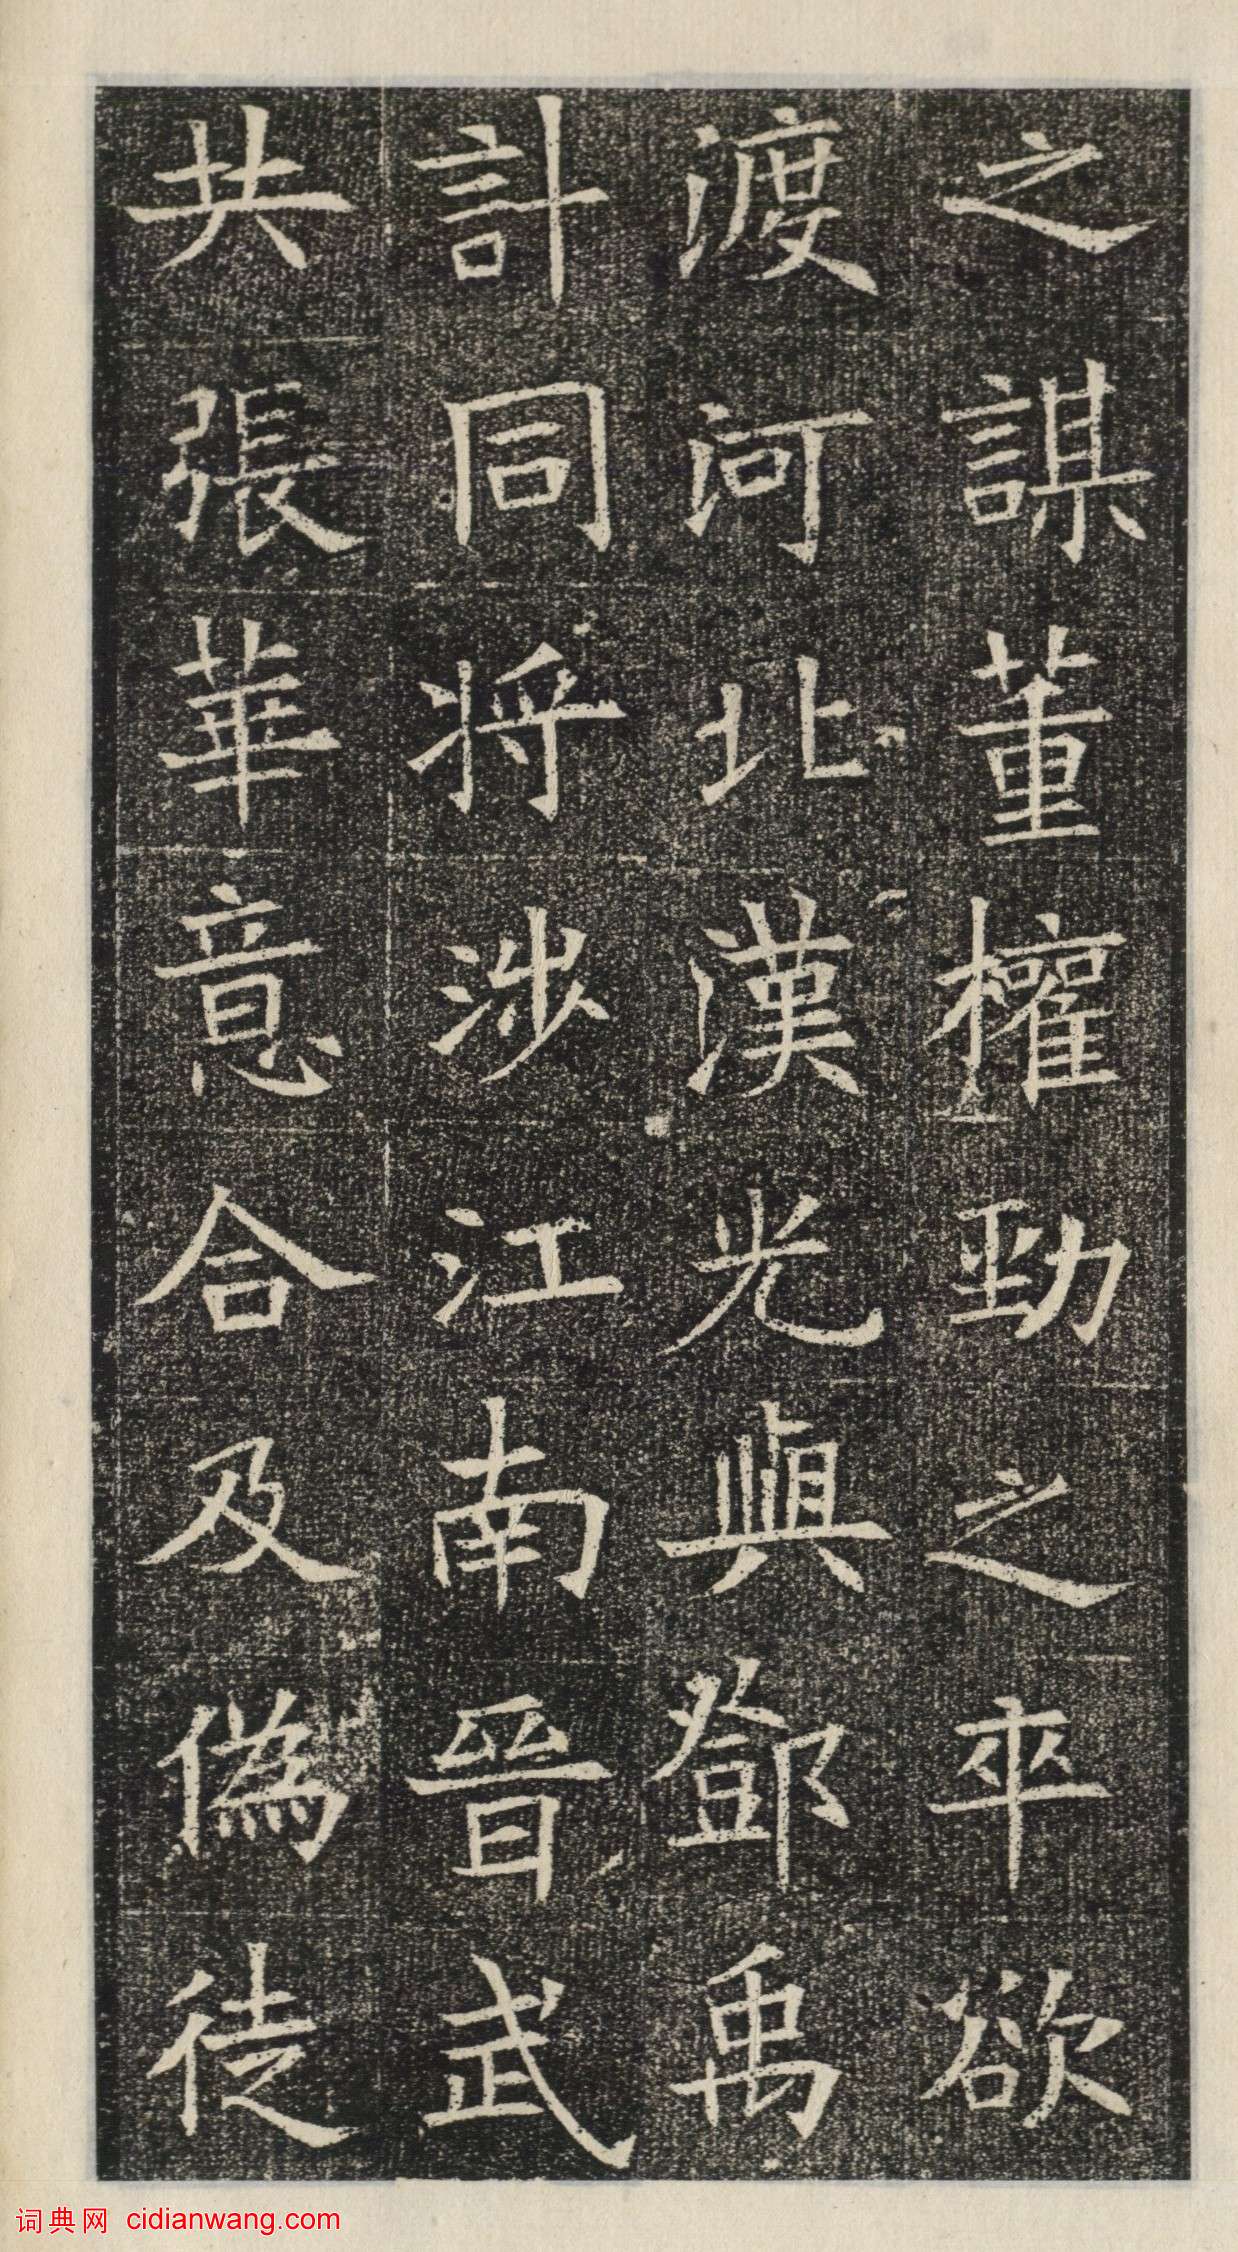 之謀董權勁之卒欲
渡河北漢光與鄧禹
計同將涉江南晉武
共張華意合及偽徒
词典网 cidianwang.com